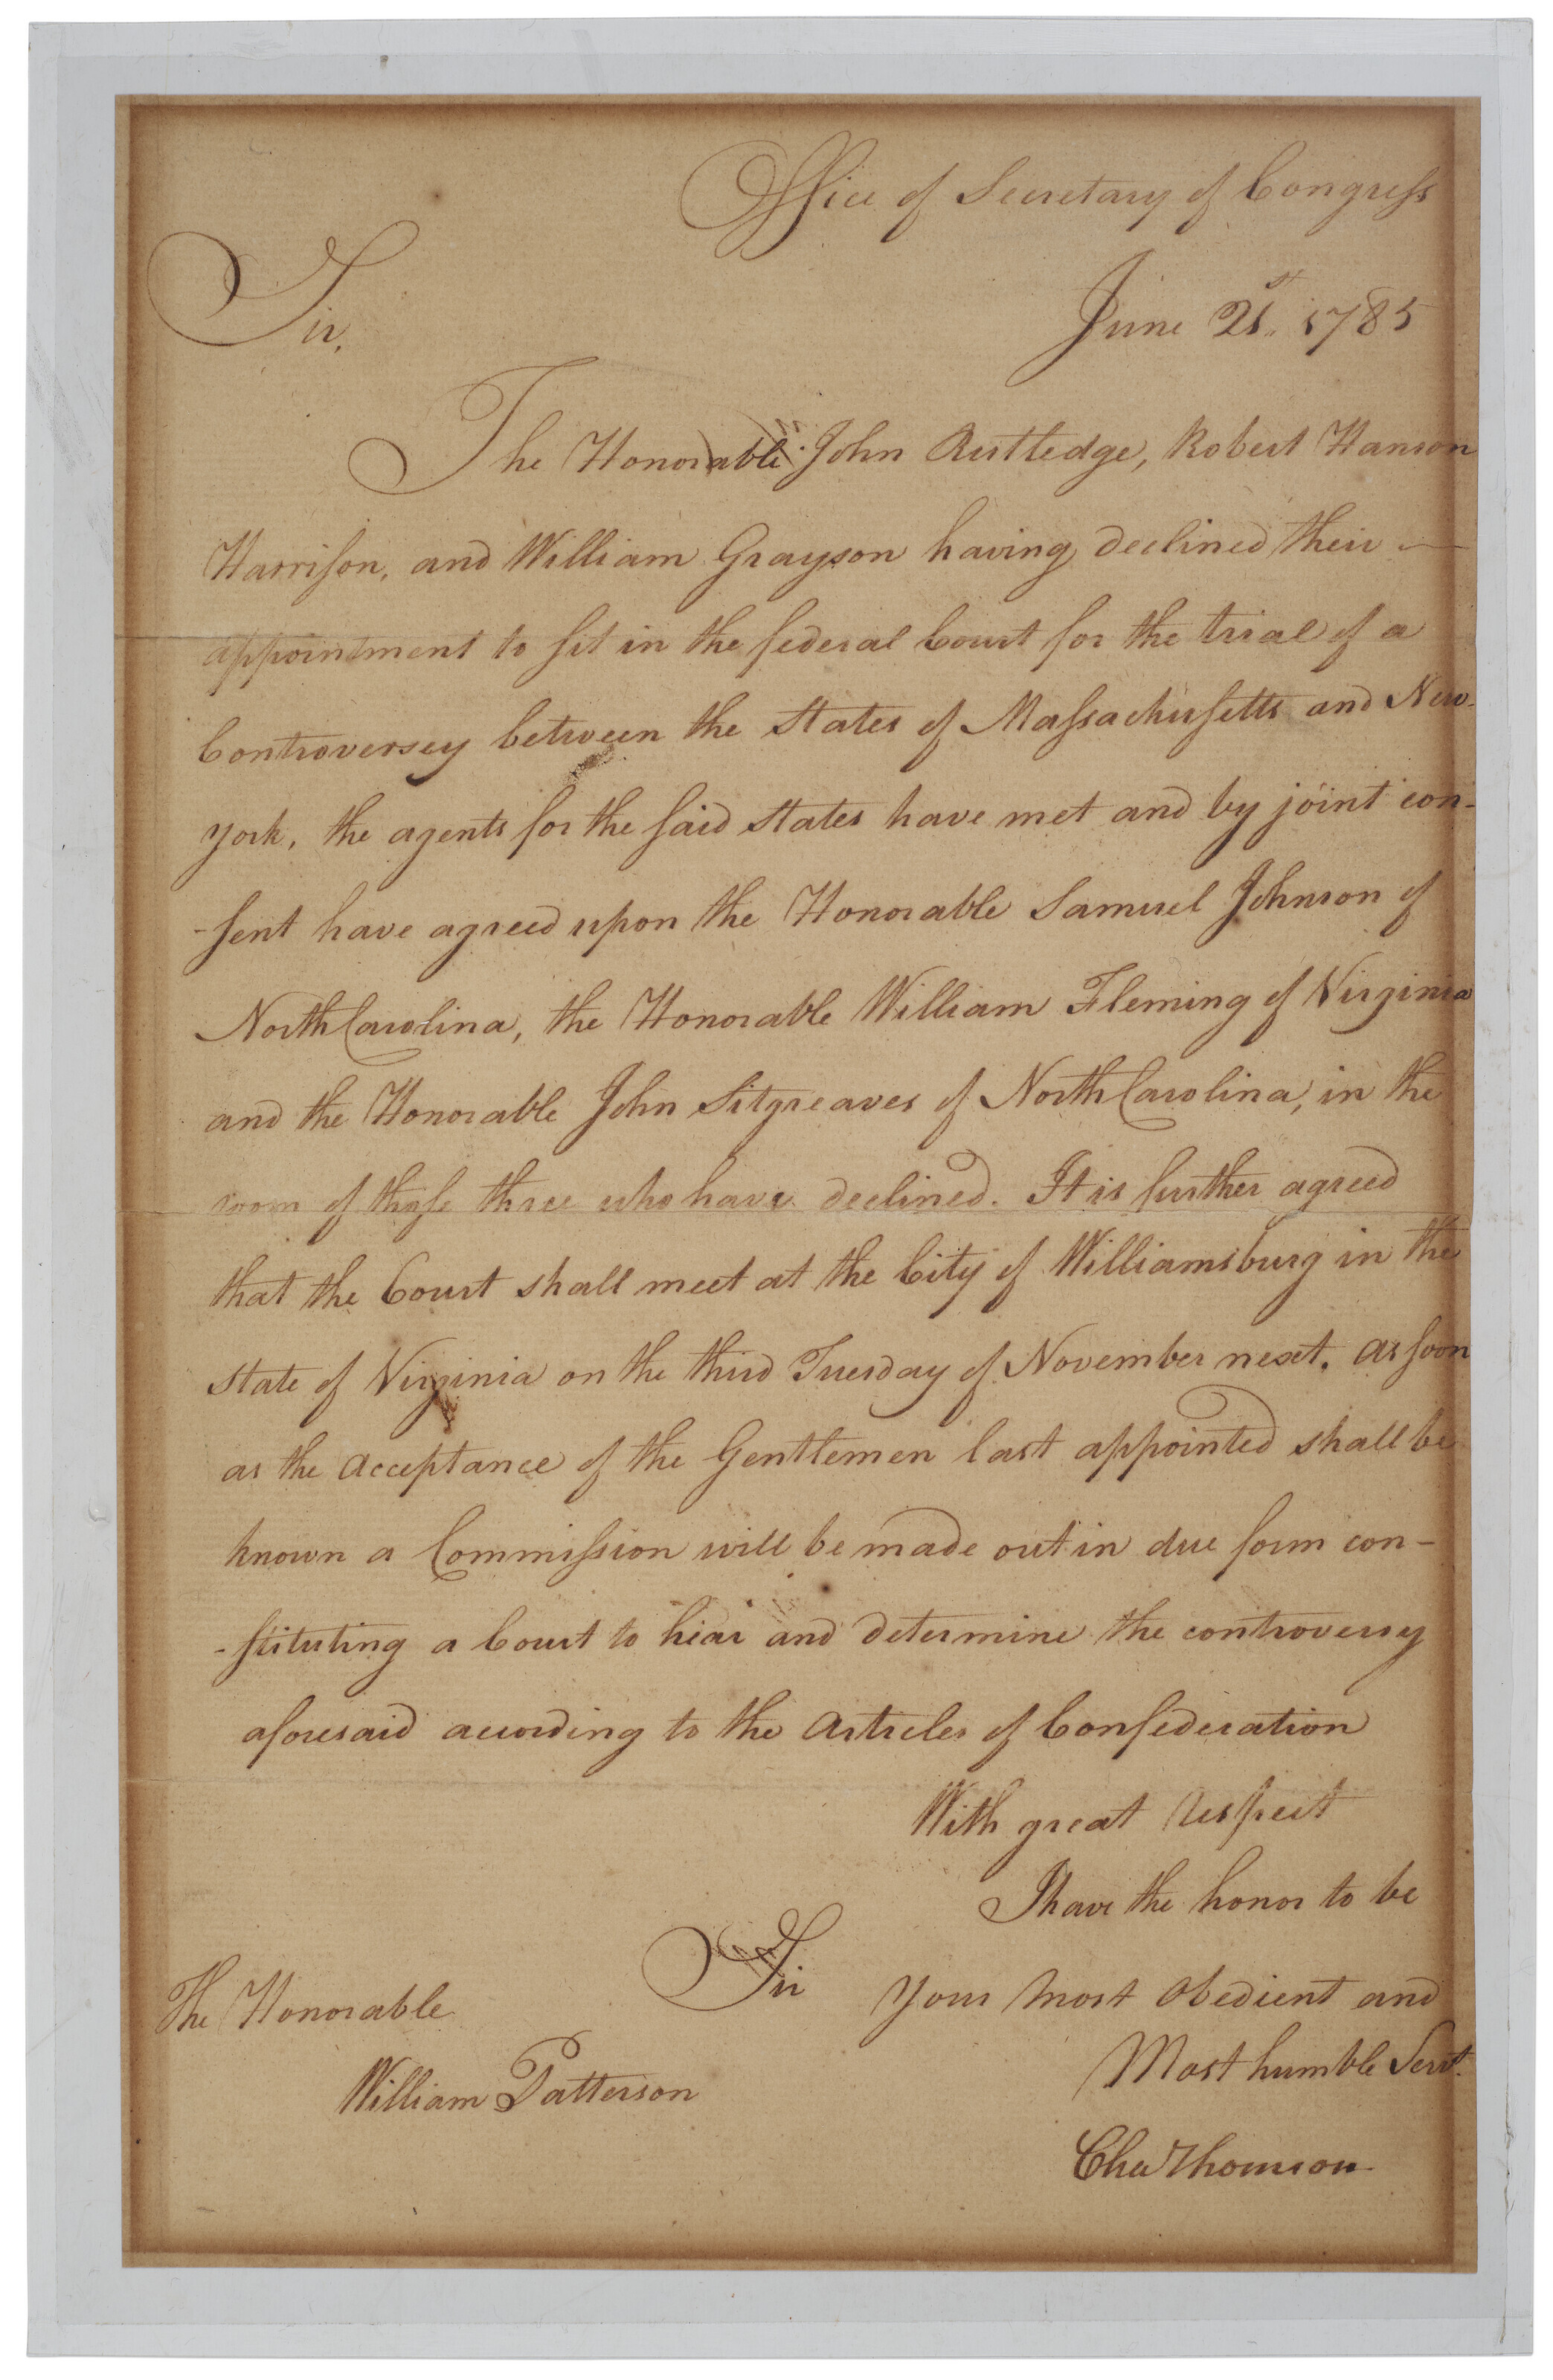 Office of Secretary of Congress
June 21st. 1785
Sir,
The Honorable John Rutledge, Robert Hanson
Harrison, and William Grayson having declined their
appointment to sit in the federal Court for the trial of a
Controversey between the States of Massachusetts and New-
york, the agents for the said states have met and by joint con-
-sent have agreed upon the Honorable Samuel Johnson of
North Carolina, the Honorable William Fleming of Virginia
and the Honorable John Sitgreaves of North Carolina, in the
room of those three who have declined. It is further agreed
that the Court shall meet at the City of Williamsburg in the
state of Virginia on the third Tuesday of November next. As soon
as the Acceptance of the Gentlemen last appointed shall be
known a Commission will be made out in due form con-
-stituting a Court to hear and determine the controversy
aforesaid according to the Articles of Confederation
With great Respect
I have the honor to be
Sir Your Most Obedient and
Most humble Servt.
The Honorable
William Patterson
Chas Thomson